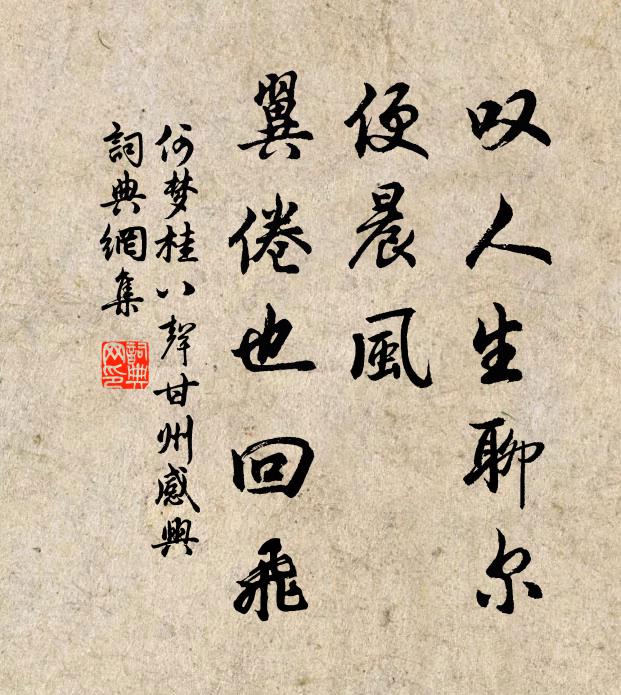 叹人生聊尔
便晨風
翼倦也回飛
何梦桂八聲甘州感興
詞典網集
詞典网印